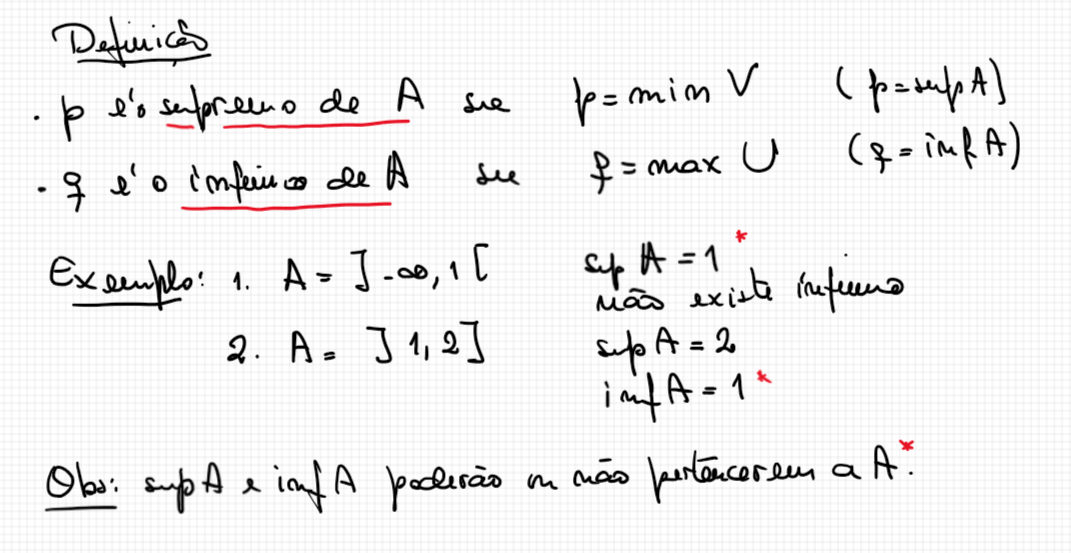 Definição
. p é o supremo de A sse p = min V (p = sup A)
. q é o ínfimo de A sse q = max U (q = inf A)
Exemplo: 1. A = ]-∞, 1[ sup A = 1 *
não existe ínfimo
2. A = ]1, 2] sup A = 2
inf A = 1 *
Obs: sup A e inf A poderão ou não pertencerem a A.*